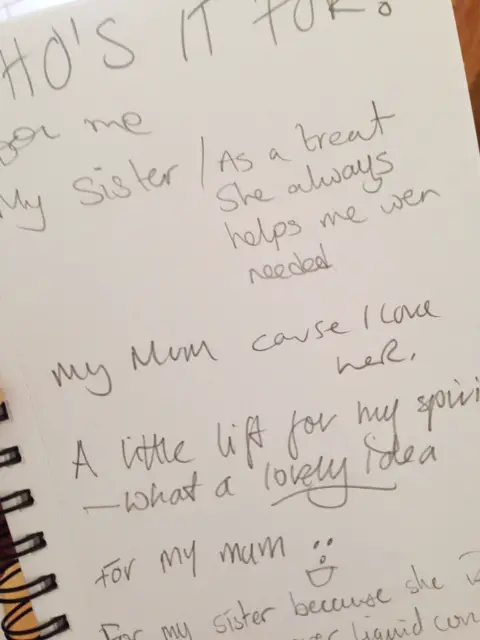 HO'S IT FOR?
for me
My sister / As a treat
She always
helps me wen
needed
My Mum cause I love
her.
A little lift for my spiri
—what a lovely idea
For my mum
For my sister because she is
liquid